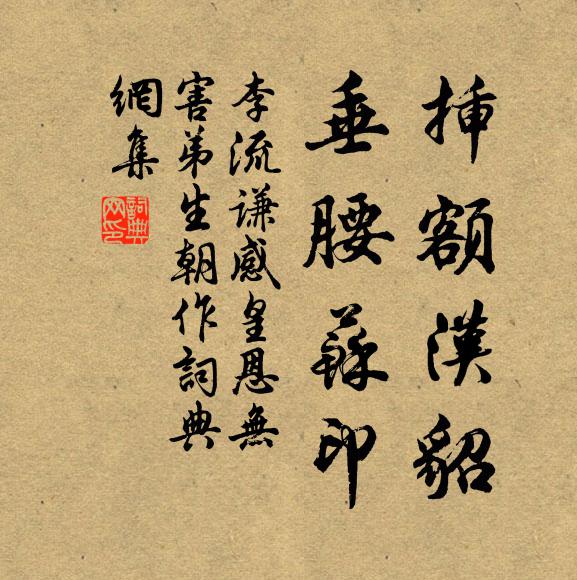 挿額漢貂
垂腰蘇印
李流謙感皇恩無
害弟生朝作詞典
網集
詞典網印